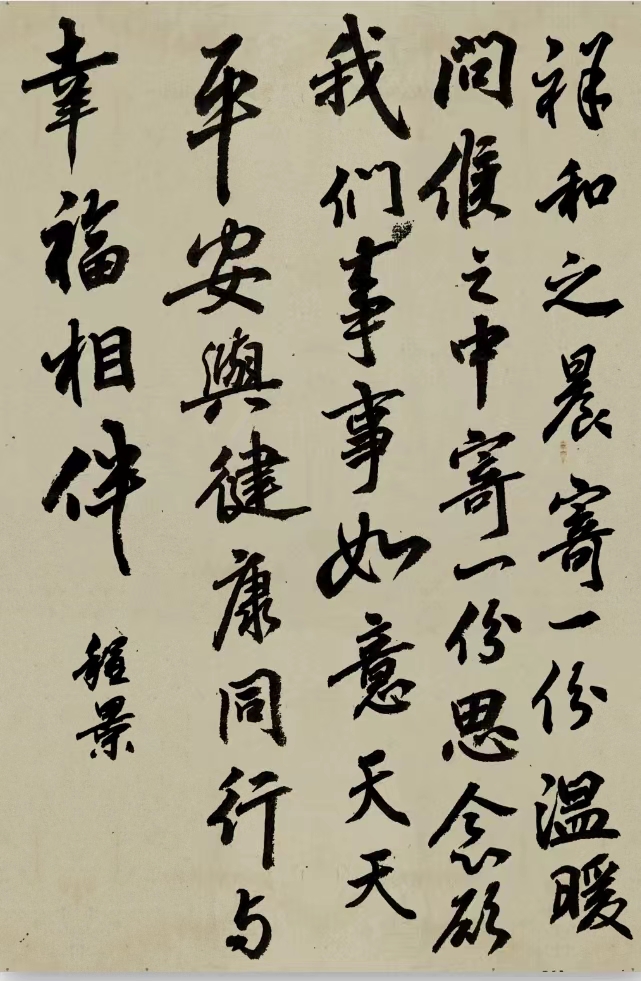 祥和之晨寄一份温暖
问候之中寄一份思念愿
我们事事如意天天
平安與健康同行与
幸福相伴
程景